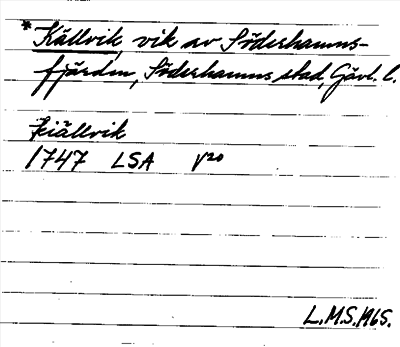 * Källvik, vik av Söderhamns-
fjärden, Söderhamns stad, Gävl. l.
Kiällvik
1747 LSA V20
L.M.S. 1965.